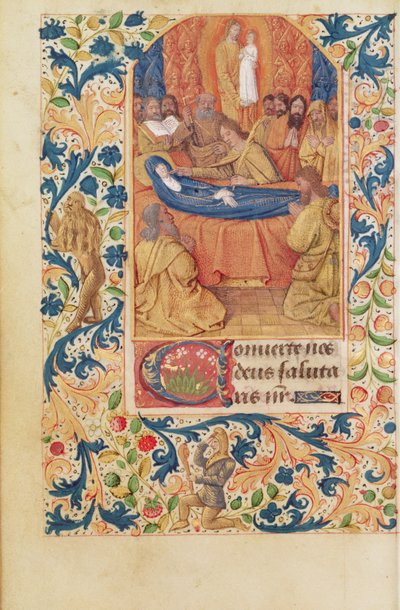 Conuerte nos
deus saluta
ris nr̄